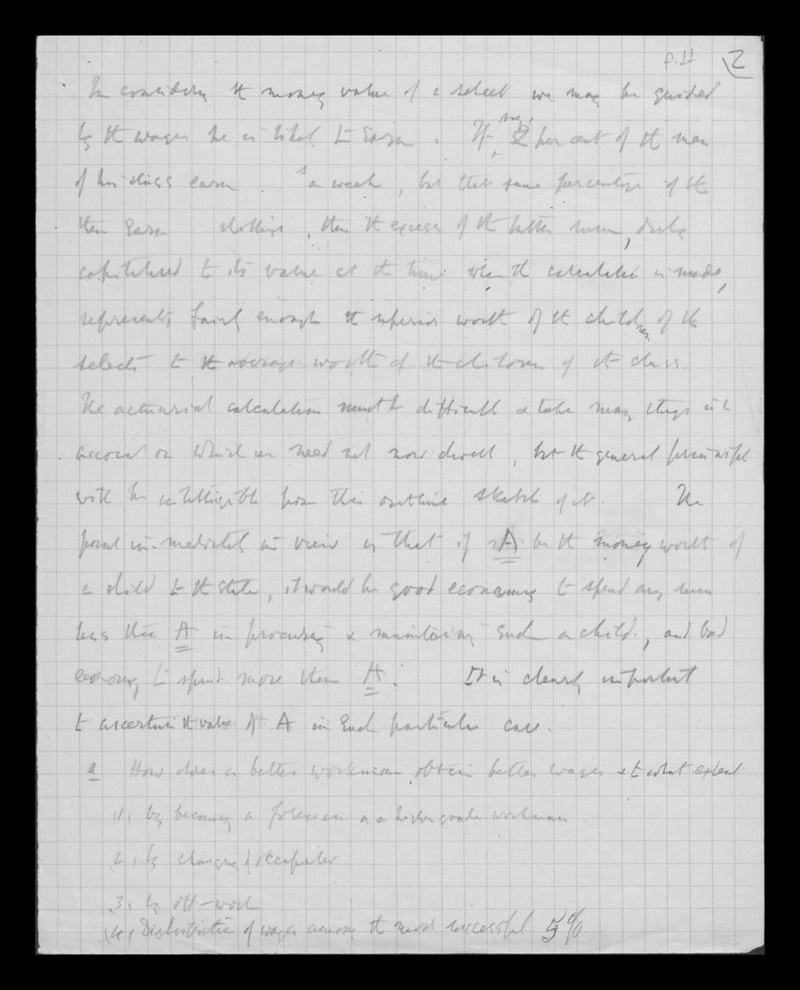 p.11 2
In considering the money value of a select we may be guided
by the wages he is likely to earn. If, say, 2 per cent of the men
of his class earn s a week, but that same percentage of the
then earn shillings, then the excess of the latter sum, duly
capitalised to its value at the time when the calculation is made,
represents fairly enough the superior worth of the children of the
selects to the average worth of the children of the class.
The actuarial calculation must be difficult & take many things into
account on which we need not now dwell, but the general principle
will be intelligible from this outline sketch of it. The
point immediately in view is that if A be the money worth of
a child to the state, it would be good economy to spend any sum
less than A in procuring & maintaining such a child, and bad
economy to spend more than A. It is clearly important
to ascertain the value of A in each particular case.
a How does a better workman obtain better wages & to what extent
(1, by becoming a foreman or a higher grade workman
(2, by changing occupation
(3, by -work
(4, Distribution of wages among the most successful 5%